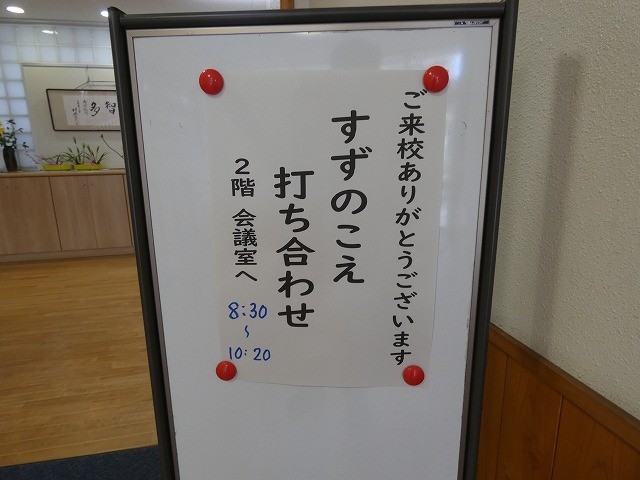 ご来校ありがとうございます
すずのこえ
打ち合わせ
2階 会議室へ
8:30
～
10:20